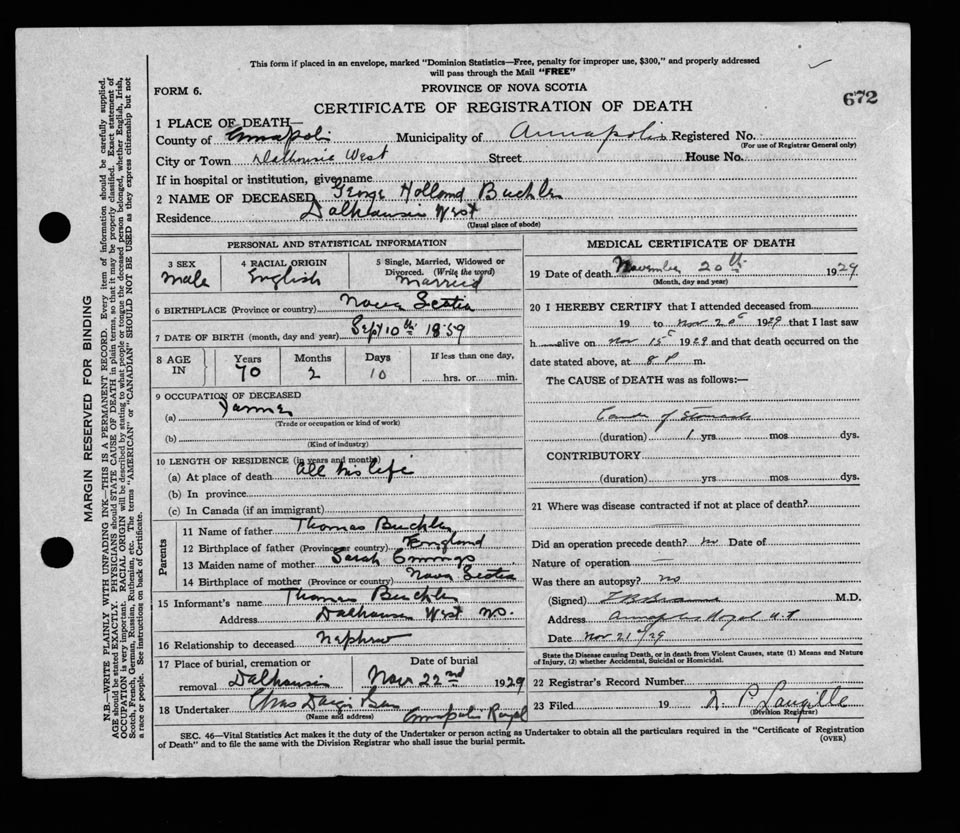 This form if placed in an envelope, marked "Dominion Statistics—Free, penalty for improper use, $300," and properly addressed
will pass through the Mail "FREE"
FORM 6.
PROVINCE OF NOVA SCOTIA
672
CERTIFICATE OF REGISTRATION OF DEATH
1 PLACE OF DEATH—
County of Annapolis Municipality of Annapolis Registered No.
(For use of Registrar General only)
City or Town Dalhousie West Street House No.
If in hospital or institution, give name
2 NAME OF DECEASED George Holland Buckler
Residence Dalhousie West
(Usual place of abode)
PERSONAL AND STATISTICAL INFORMATION
3 SEX 4 RACIAL ORIGIN 5 Single, Married, Widowed or
Divorced. (Write the word)
Male English Married
6 BIRTHPLACE (Province or country) Nova Scotia
7 DATE OF BIRTH (month, day and year) Sept 10th 1859
8 AGE IN Years Months Days If less than one day,
70 2 10 hrs. or min.
9 OCCUPATION OF DECEASED
(a) Farmer
(Trade or occupation or kind of work)
(b)
(Kind of industry)
10 LENGTH OF RESIDENCE (in years and months)
(a) At place of death All his life
(b) In province
(c) In Canada (if an immigrant)
Parents
11 Name of father Thomas Buckler
12 Birthplace of father (Province or country) England
13 Maiden name of mother Sarah
14 Birthplace of mother (Province or country) Nova Scotia
15 Informant's name Thomas Buckler
Address Dalhousie West
16 Relationship to deceased Nephew
17 Place of burial, cremation or Date of burial
removal Dalhousie Nov 22nd 1929
18 Undertaker Chas
(Name and address) Annapolis Royal
MEDICAL CERTIFICATE OF DEATH
19 Date of death November 20th 1929
(Month, day and year)
20 I HEREBY CERTIFY that I attended deceased from
19 to Nov 20 1929 that I last saw
h alive on Nov 15 1929 and that death occurred on the
date stated above, at 8 P m.
The CAUSE of DEATH was as follows:—
Cancer of Stomach
(duration) 1 yrs mos dys.
CONTRIBUTORY
(duration) yrs mos dys.
21 Where was disease contracted if not at place of death?
Did an operation precede death? no Date of
Nature of operation
Was there an autopsy? no
(Signed) M.D.
Address Annapolis Royal N.S
Date Nov 21/29
State the Disease causing Death, or in death from Violent Causes, state (1) Means and Nature
of Injury, (2) whether Accidental, Suicidal or Homicidal.
22 Registrar's Record Number
23 Filed 19 P Langille
(Division Registrar)
SEC. 46—Vital Statistics Act makes it the duty of the Undertaker or person acting as Undertaker to obtain all the particulars required in the "Certificate of Registration
of Death" and to file the same with the Division Registrar who shall issue the burial permit.
(OVER)
MARGIN RESERVED FOR BINDING
N.B.—WRITE PLAINLY WITH UNFADING INK—THIS IS A PERMANENT RECORD. Every item of information should be carefully supplied.
AGE should be stated EXACTLY. PHYSICIANS should STATE CAUSE OF DEATH in plain terms, so that it may be properly classified. Exact statement of
OCCUPATION is very important. RACIAL ORIGIN will be described by stating to what people or tongue the deceased person belonged, whether English, Irish,
Scotch, French, German, Russian, Ruthenian, etc. The terms "AMERICAN" or "CANADIAN" SHOULD NOT BE USED as they express citizenship but not
a race or people. See instructions on back of Certificate.